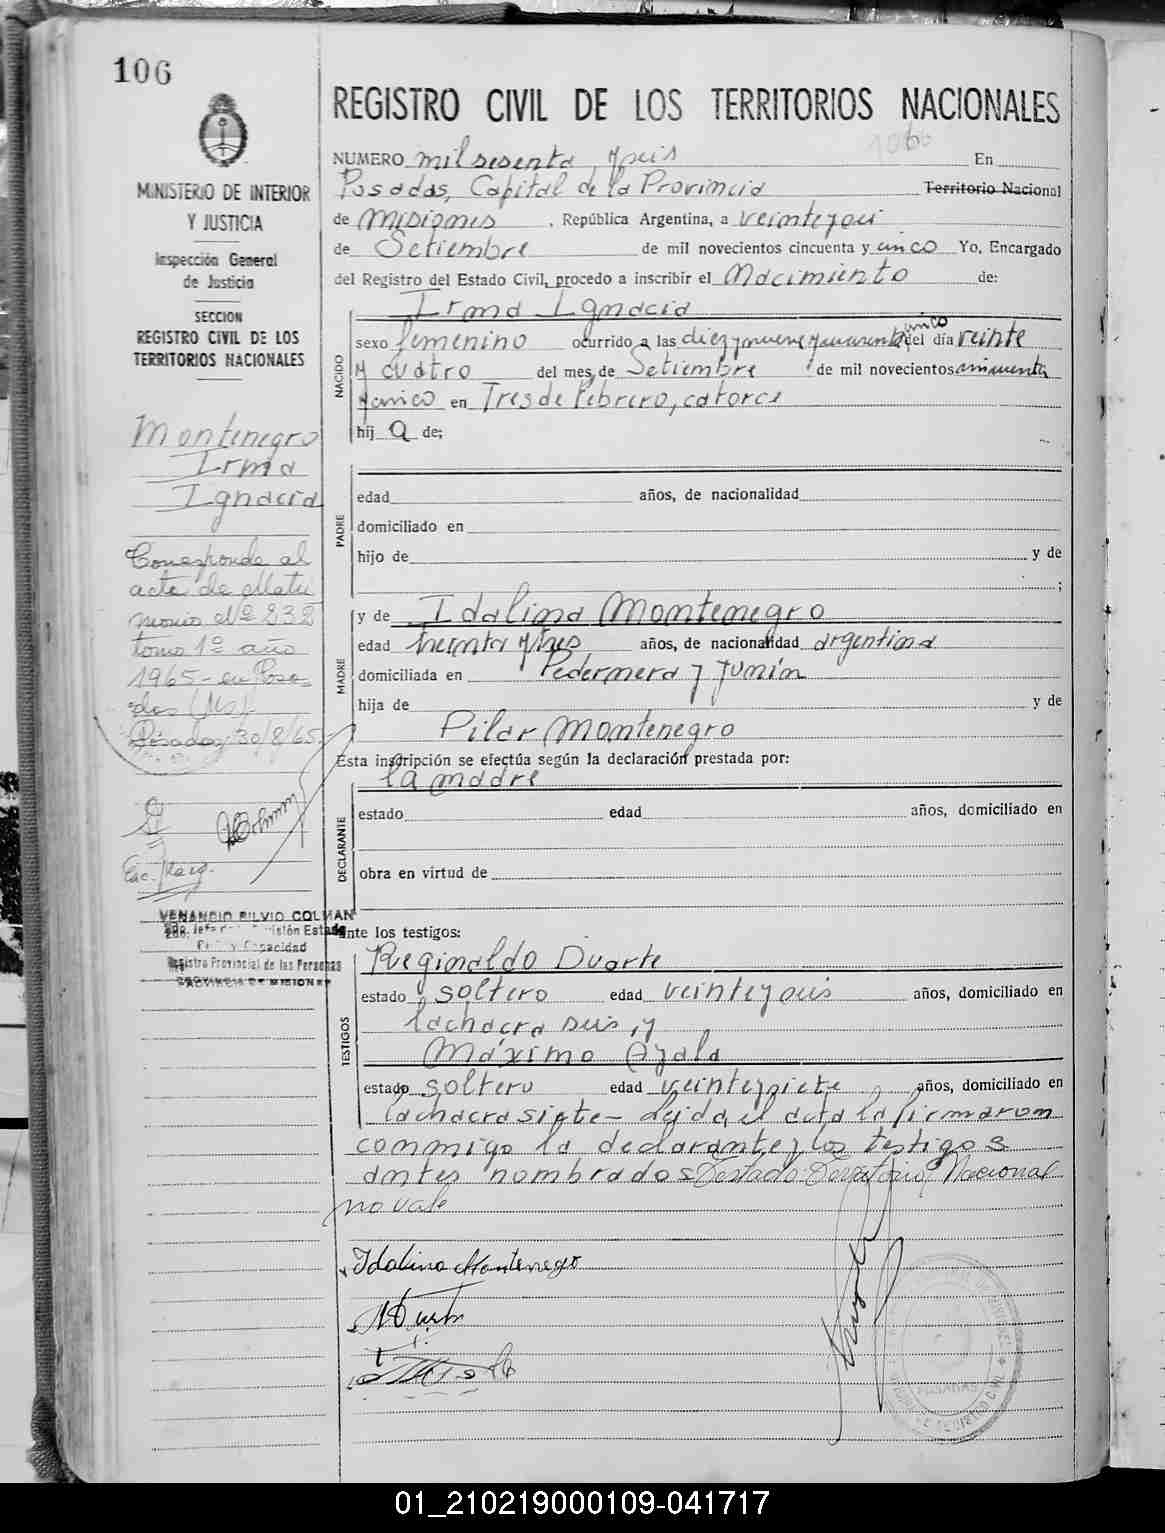 106
REGISTRO CIVIL DE LOS TERRITORIOS NACIONALES
MINISTERIO DE INTERIOR
Y JUSTICIA
Inspección General
de Justicia
SECCION
REGISTRO CIVIL DE LOS
TERRITORIOS NACIONALES
Montenegro
Irma
Ignacia
Corresponde al
acta de Matri
monio Nº 232
tomo 1º año
1965 - en Posa-
das (Ms).
Posadas, 30/8/65.
VENANCIO SILVIO COLMAN
2do. Jefe División Estado
Civil y Capacidad
Registro Provincial de las Personas
PROVINCIA DE MISIONES
NUMERO mil sesenta y seis En
Posadas, Capital de la Provincia Territorio Nacional
de Misiones , República Argentina, a veinteyseis
de Setiembre de mil novecientos cincuenta y cinco Yo, Encargado
del Registro del Estado Civil, procedo a inscribir el Nacimiento de:
Irma Ignacia
NACIDO
sexo femenino ocurrido a las diez y nueve y cuarenta y cinco del día veinte
y cuatro del mes de Setiembre de mil novecientos cincuenta
y cinco en Tres de Febrero, catorce
hij a de;
PADRE
edad años, de nacionalidad
domiciliado en
hijo de y de
;
MADRE
y de Idalina Montenegro
edad treinta y tres años, de nacionalidad argentina
domiciliada en Pedernera y Junín
hija de y de
Pilar Montenegro
Esta inscripción se efectúa según la declaración prestada por:
la madre
DECLARANTE
estado edad años, domiciliado en
obra en virtud de
Ante los testigos:
TESTIGOS
Reginaldo Duarte
estado soltero edad veinteyseis años, domiciliado en
la chacra seis, y
Máximo Ayala
estado soltero edad veinteysiete años, domiciliado en
la chacra siete - leída el acta la firmaron
conmigo la declarante y los testigos
antes nombrados Testado Territorio Nacional
no vale
Idalina Montenegro
POSADAS
01_210219000109-041717